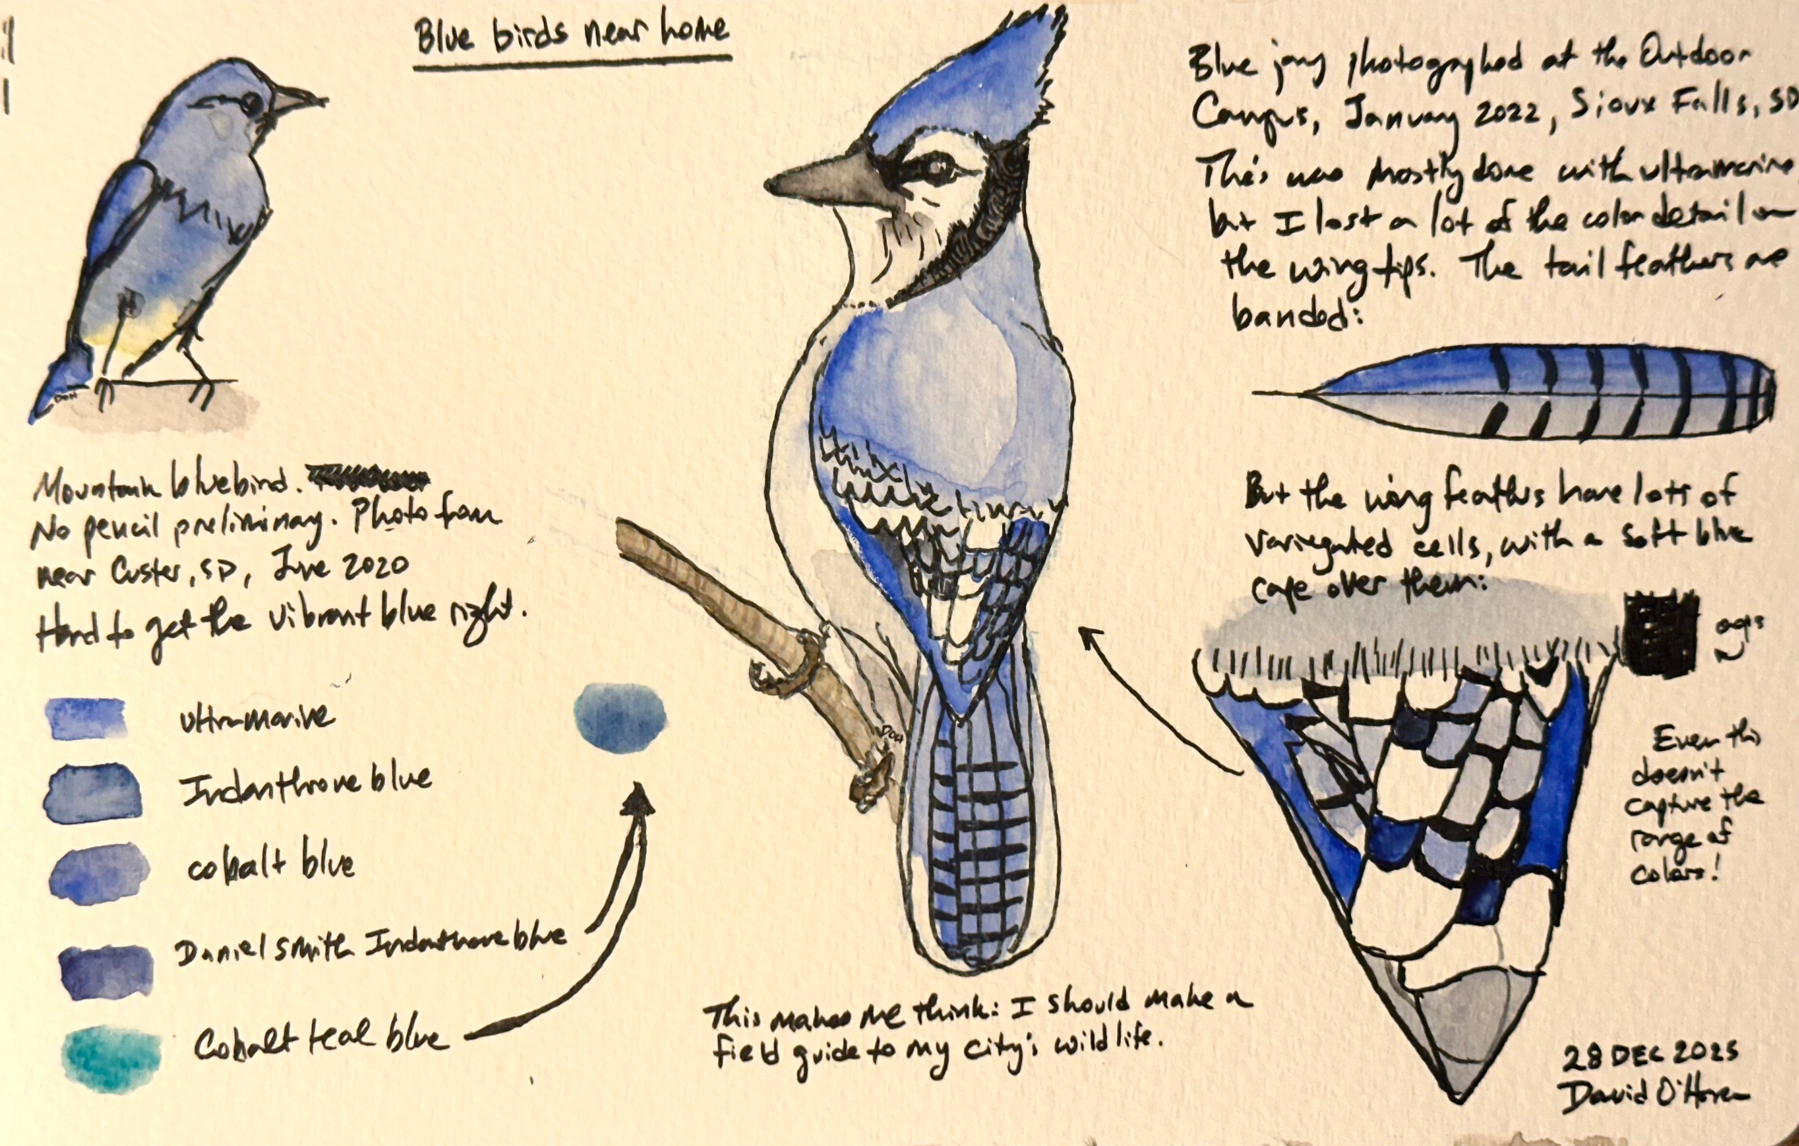 Blue birds near home
Mountain bluebird.
No pencil preliminary. Photo from
near Custer, SD, June 2020
Hard to get the vibrant blue right.
ultramarine
Indanthrone blue
cobalt blue
Daniel Smith Indanthrone blue
Cobalt teal blue
DOH
DOH
This makes me think: I should make a
field guide to my city's wildlife.
Blue jay photographed at the Outdoor
Campus, January 2022, Sioux Falls, SD
This was mostly done with ultramarine,
but I lost a lot of the color detail on
the wing tips. The tail feathers are
banded:
But the wing feathers have lots of
variegated cells, with a soft blue
cape over them:
oops
Even this
doesn't
capture the
range of
colors!
28 DEC 2025
David O'Hara